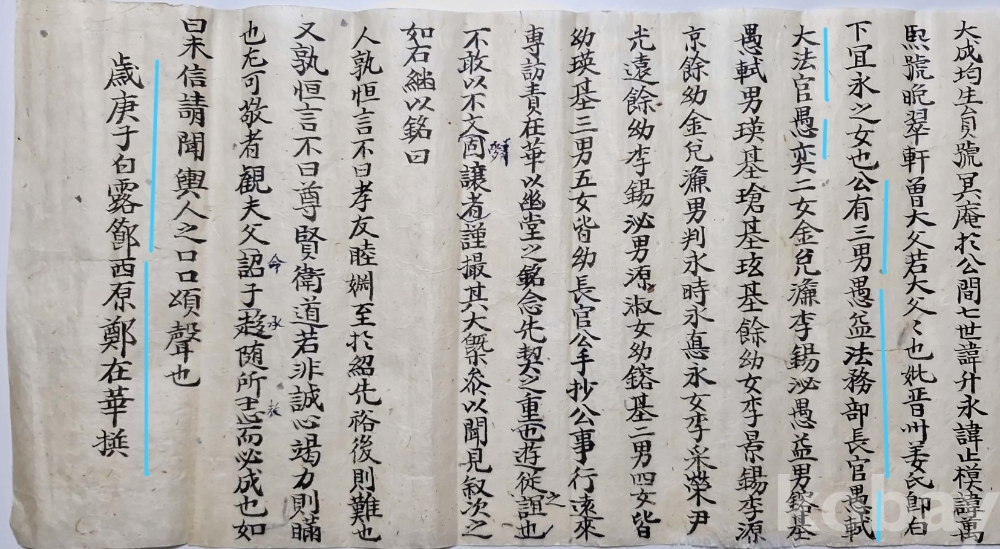 大成均生員號冥庵於公間七世諱升永諱止模諱萬
熙號晩翠軒曾大父若大父〻也妣晋州姜氏郎右
下宜永之女也公有三男愚益法務部長官愚軾
大法官愚奕二女金兌濂李錫泌愚益男鎔基
愚軾男瑛基瑲基玹基餘幼女李景錫李源
京餘幼金兌濂男判永時永悳永女李采榮尹
光遠餘幼李錫泌男源淑女幼鎔基二男四女皆
幼瑛基三男五女皆幼長官公手抄公事行遠來
專訪責在華以幽堂之銘念先契之重也遊從之誼也
不敢以不文固讓者謹撮其大槩叅以聞見叙次之
如右継以銘曰
人孰恒言不曰孝友睦婣至於紹先裕後則難也
又孰恒言不曰尊賢衛道若非誠心竭力則瞞
也尤可敬者觀夫父詔子趍随所志而必成也如
命
承
曰未信請聞輿人之口口頌聲也
歲庚子白露節西原鄭在華撰
kobay